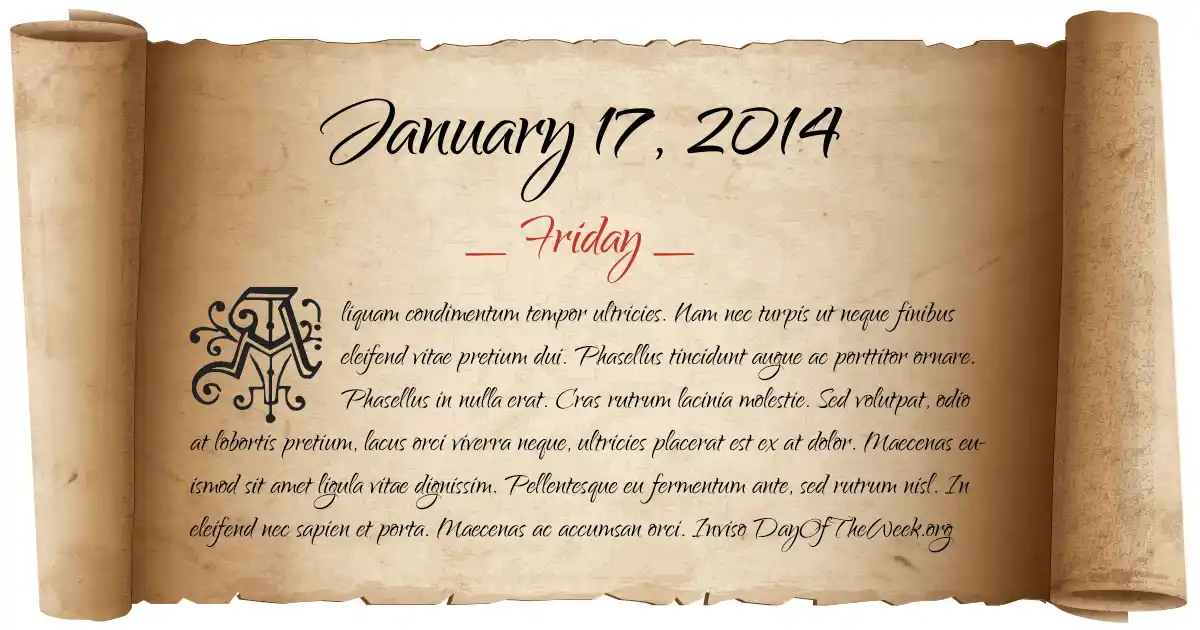 January 17, 2014
_ Friday _
Aliquam condimentum tempor ultricies. Nam nec turpis ut neque finibus
eleifend vitae pretium dui. Phasellus tincidunt augue ac porttitor ornare.
Phasellus in nulla erat. Cras rutrum lacinia molestie. Sed volutpat, odio
at lobortis pretium, lacus orci viverra neque, ultricies placerat est ex at dolor. Maecenas eu-
ismod sit amet ligula vitae dignissim. Pellentesque eu fermentum ante, sed rutrum nisl. In
eleifend nec sapien et porta. Maecenas ac accumsan orci. Inviso DayOfTheWeek.org